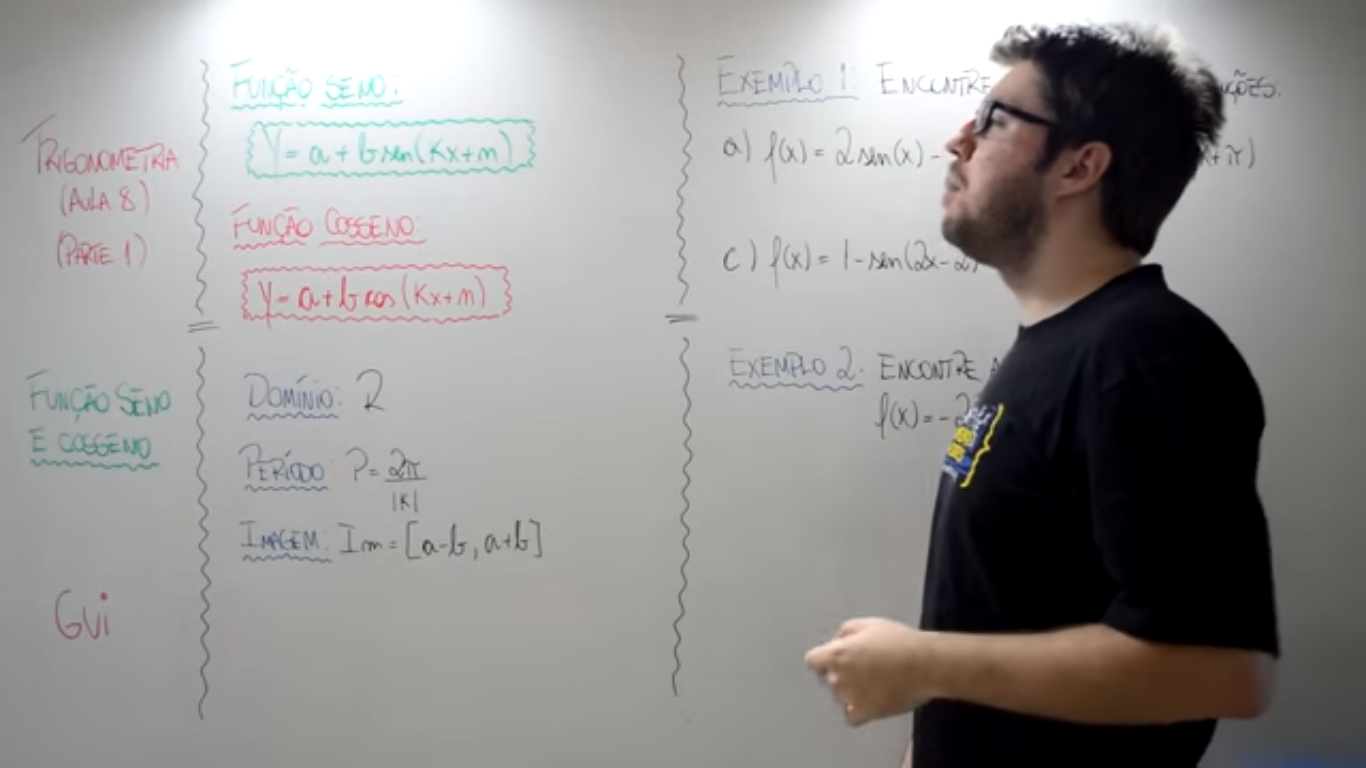 TRIGONOMETRIA
(AULA 8)
(PARTE 1)
FUNÇÃO SENO
E COSSENO
GUI
FUNÇÃO SENO:
Y = a + b sen(Kx+m)
FUNÇÃO COSSENO:
Y = a + b cos(Kx+m)
DOMÍNIO: R
PERÍODO: P = 2π
|K|
IMAGEM: Im = [a-b, a+b]
EXEMPLO 1: ENCONTRE
a) f(x) = 2sen(x) - + π)
c) f(x) = 1 - sen(2x - 2
EXEMPLO 2: ENCONTRE A
f(x) = -2